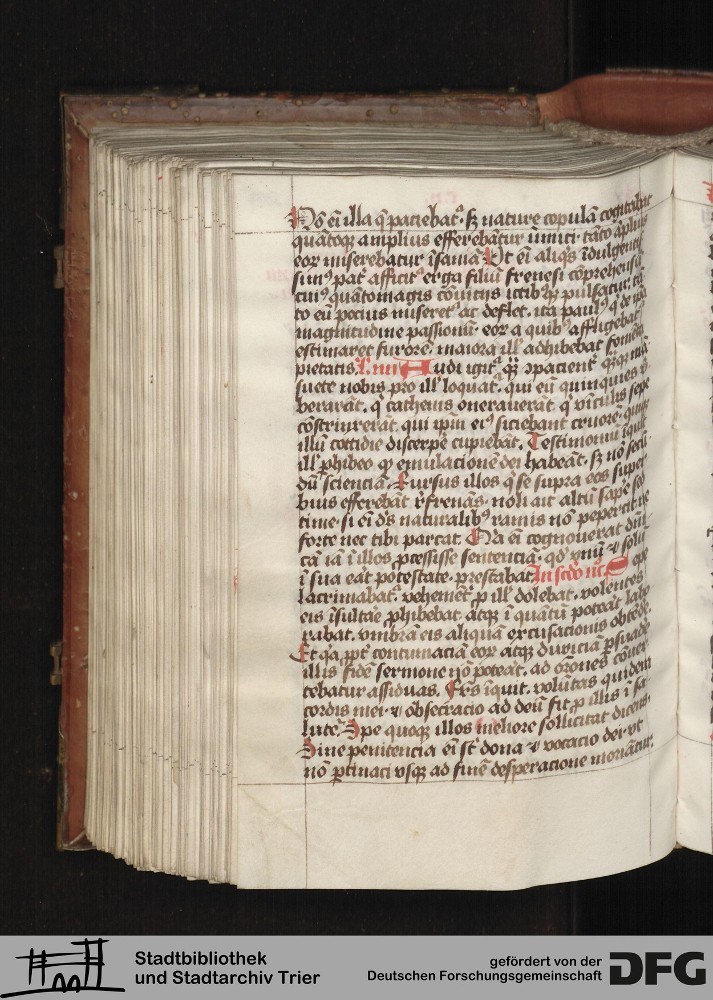 Nō eī illa q̄ patiebatᷣ. sꝫ nature copulā cogitabat
quātoqꝫ amplius efferebātur inimici tāto āplius
eoꝝ miserebatur īsaniā Ut eī aliqͥs īdulgētis
simꝰ pat̓ afficitᷣ erga filiū frenesi cōprehensū
cuiꝰ quātomagis cōuitijs ictibꝫqꝫ pulsatur. tā
to eū pocius miseretᷣ ac deflet. ita paulꝰ q̄ de
magnitudine passionū eoꝝ a quibꝰ affligebatᷣ
estimaret furorē. maiora ill̓ adhibebat fomēta
pietatis. L. iiij Audi igitᷣ qͣꝫ ꝯpacient̓ qͣꝫqꝫ mā
suete nobis pro ill̓ loquatᷣ. qui eū quinquies
verarāt. q̄ cathenis onerauerāt q̄ vīculis sepe
cōstrinxerāt. qui ip̄iꝰ eiꝰ sitiebant cruorē.
illū cottidie discerpe cupiebāt. Testimoniū īquit
ill̓ phibeo qꝫ emulacionē dei habeāt. sꝫ nō secū
dū scienciā. Rursus illos q̄ se supra eos super
bius efferebāt refrenās. noli ait altū sape sꝫ
time. si eī dꝰs naturalibꝰ ramis nō pepercit ne
forte nec tibi parcat. Nā eī cognouerat dn̄i
cā iā ī illos ꝓcessisse sentenciā. qd̓ vnū ⁊ solū
ī sua eāt potestate. prestabat In scd̓o nͦ. Sepe
lacrimabatᷣ. vehement̓ p ill̓ dolebat. volentes
eis īsultāe phibebat. atqꝫ ī quātū poteāt labo
rabat. vmbrā eis aliquā excusacionis obtēde.
Et qͣ ꝓpt̓ contumaciā eoꝝ atqꝫ duriciā ꝑsuade
illis fidē sermone nō poteāt. ad orōnes conuer
tebatur assiduas. Frēs īquit. volūtas quidem
cordis mei ⁊ obsecracio ad deū fit ꝓ illis ī sa
lutē. Spe quoqꝫ illos meliore sollicitat dicens.
Sine penitencia eī sūt dona ⁊ vocacio dei. vt
nō ꝑtinaci vsqꝫ ad finē desperacione moriātur.
Stadtbibliothek
und Stadtarchiv Trier
gefördert von der
Deutschen Forschungsgemeinschaft DFG